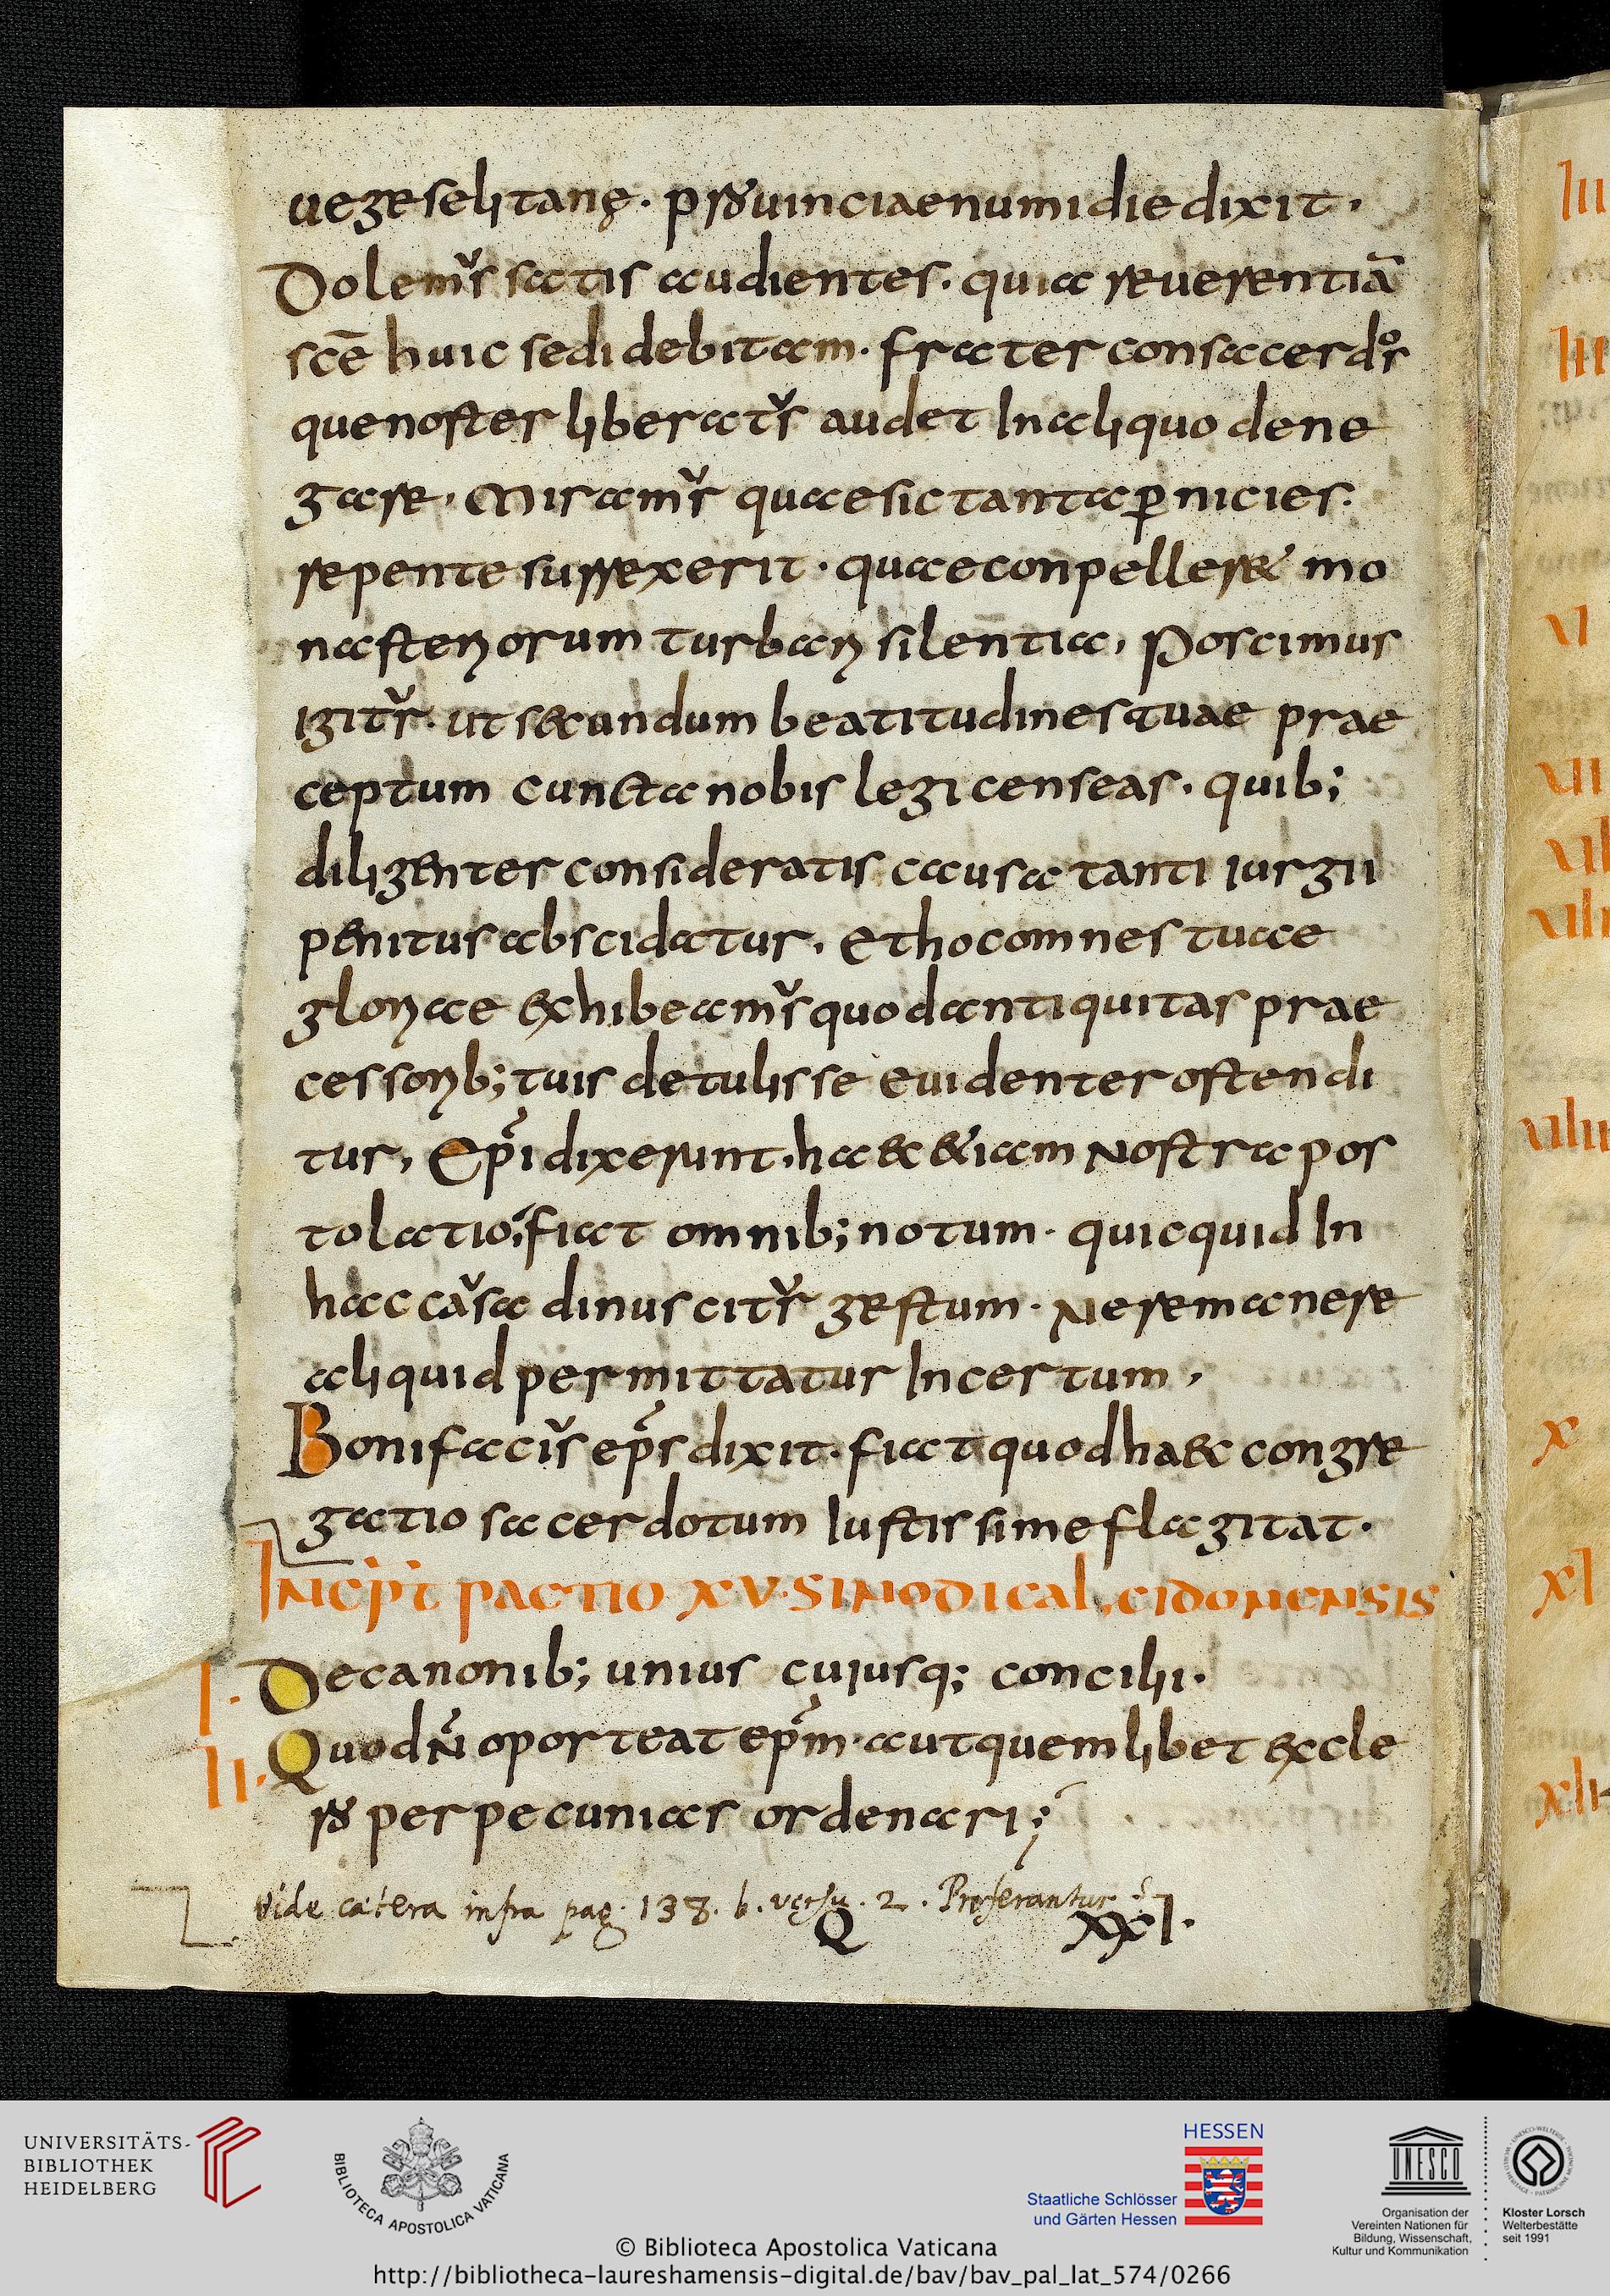 uegeselitanę. prouinciae numidie dixit.
Dolemus satis audientes. quia reuerentiā
scē huic sedi debitam. frater consacerdos
que noster liberatus audet In aliquo dene
gare. Miramur quae sic tanta pnicies.
repente surrexerit. quae conpelleret mo
nasteriorum turbari silentia. Poscimus
igitur. ut secundum beatitudines tuae prae
ceptum cuncta nobis legi censeas. quib;
diligenter consideratis causa tanti iurgii
penitus abscidatur. Et hoc omnes tuae
gloriae exhibeamus quod antiquitas prae
cessorib; tuis detulisse euidenter ostendi
tur. Epi dixerunt. haec etiam Nostra pos
tolatio; fiat omnib; notum. quicquid In
hac causa dinuscitur gestum. Ne remanere
aliquid permittatur Incertum.
Bonifacius eps dixit. fiat quod haec congre
gatio sacerdotum Iustissime flagitat.
INCIPIT PACTIO XV. SINODI CAL,CIDONENSIS
I. De canonib; unius cuiusq; concilii.
II. Quod ñ oporteat epm. aut quemlibet ex cle
ro per pecunias ordenari;
vide cætera infra pag. 138. b. versu. 2. Proferantur
Q XXI.
III
IIII
VI
VII
VIII
VIIII
X
XI
XII
UNIVERSITÄTS-
BIBLIOTHEK
HEIDELBERG
BIBLIOTECA APOSTOLICA VATICANA
HESSEN
Staatliche Schlösser
und Gärten Hessen
UNESCO
Organisation der
Vereinten Nationen für
Bildung, Wissenschaft,
Kultur und Kommunikation
Kloster Lorsch
Welterbestätte
seit 1991
© Biblioteca Apostolica Vaticana
http://bibliotheca-laureshamensis-digital.de/bav/bav_pal_lat_574/0266